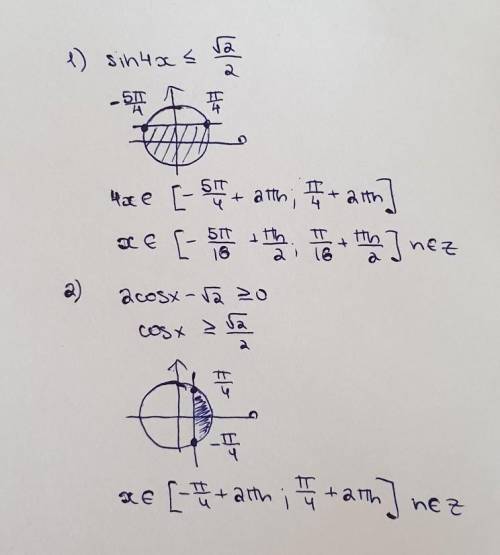 1) sin4x ≤ √2/2
-5π/4 π/4
4x ∈ [-5π/4 + 2πn; π/4 + 2πn]
x ∈ [-5π/16 + πn/2; π/16 + πn/2] n∈z
2) 2cosx - √2 ≥ 0
cosx ≥ √2/2
π/4
-π/4
x∈ [-π/4 + 2πn; π/4 + 2πn] n∈z